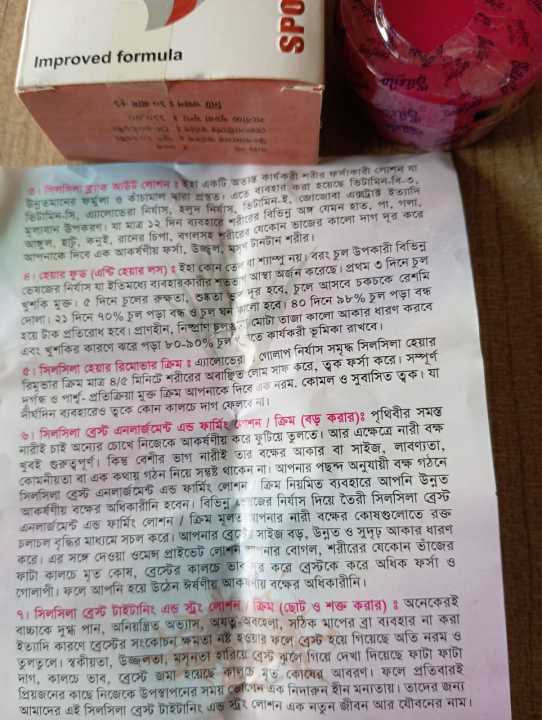 Improved formula
SPO
৩। সিলসিলা ব্ল্যাক আউট লোশন ঃ ইহা একটি অত্যন্ত কার্যকরী শরীর ফর্সাকারী লোশন যা
উন্নতমানের ফর্মুলা ও কাঁচামাল দ্বারা প্রস্তুত। এতে ব্যবহার করা হয়েছে ভিটামিন-বি-৩,
ভিটামিন-সি, এ্যালোভেরা নির্যাস, হলুদ নির্যাস, ভিটামিন-ই, জোজোবা এক্সট্রাক্ট ইত্যাদি
মূল্যবান উপকরণ। যা মাত্র ১২ দিন ব্যবহারে শরীরের বিভিন্ন অঙ্গ যেমন হাত, পা, গলা,
আঙ্গুল, হাটু, কনুই, রানের চিপা, বগলসহ শরীরের যেকোন ভাজের কালো দাগ দূর করে
আপনাকে দিবে এক আকর্ষণীয় ফর্সা, উজ্জ্বল, মসৃণ টানটান শরীর।
৪। হেয়ার ফুড (এন্টি হেয়ার লস) ঃ ইহা কোন তেল বা শ্যাম্পু নয়। বরং চুল উপকারী বিভিন্ন
ভেষজের নির্যাস যা ইতিমধ্যে ব্যবহারকারীর শতভাগ আস্থা অর্জন করেছে। প্রথম ৩ দিনে চুল
খুশকি মুক্ত। ৫ দিনে চুলের রুক্ষতা, শুষ্কতা দূর হবে, চুলে আসবে চকচকে রেশমি
দোলা। ২১ দিনে ৭০% চুল পড়া বন্ধ ও চুল ঘন কালো হবে। ৪০ দিনে ৯৮% চুল পড়া বন্ধ
হয়ে টাক প্রতিরোধ হবে। প্রাণহীন, নিষ্প্রাণ চুল মোটা তাজা কালো আকার ধারণ করবে
এবং খুশকির কারণে ঝরে পড়া ৮০-৯০% চুল কার্যকরী ভূমিকা রাখবে।
৫। সিলসিলা হেয়ার রিমোভার ক্রিম ঃ এ্যালোভেরা গোলাপ নির্যাস সমৃদ্ধ সিলসিলা হেয়ার
রিমুভার ক্রিম মাত্র ৪/৫ মিনিটে শরীরের অবাঞ্ছিত লোম সাফ করে, ত্বক ফর্সা করে। সম্পূর্ণ
দূর্গন্ধ ও পার্শ্ব- প্রতিক্রিয়া মুক্ত ক্রিম আপনাকে দিবে এক নরম, কোমল ও সুবাসিত ত্বক। যা
দীর্ঘদিন ব্যবহারেও ত্বকে কোন কালচে দাগ ফেলবে না।
৬। সিলসিলা ব্রেস্ট এনলার্জমেন্ট এন্ড ফার্মিং লোশন / ক্রিম (বড় করার)ঃ পৃথিবীর সমস্ত
নারীই চাই অন্যের চোখে নিজেকে আকর্ষণীয় করে ফুটিয়ে তুলতে। আর এক্ষেত্রে নারী বক্ষ
খুবই গুরুত্বপূর্ণ। কিন্তু বেশীর ভাগ নারীই তার বক্ষের আকার বা সাইজ, লাবণ্যতা,
কোমনীয়তা বা এক কথায় গঠন নিয়ে সন্তুষ্ট থাকেন না। আপনার পছন্দ অনুযায়ী বক্ষ গঠনে
সিলসিলা ব্রেস্ট এনলার্জমেন্ট এন্ড ফার্মিং লোশন / ক্রিম নিয়মিত ব্যবহারে আপনি উন্নত
আকর্ষণীয় বক্ষের অধিকারীনি হবেন। বিভিন্ন নির্যাস দিয়ে তৈরী সিলসিলা ব্রেস্ট
এনলার্জমেন্ট এন্ড ফার্মিং লোশন / ক্রিম মূলত আপনার নারী বক্ষের কোষগুলোতে রক্ত
চলাচল বৃদ্ধির মাধ্যমে সচল করে। আপনার ব্রেস্ট সাইজ বড়, উন্নত ও সুদৃঢ় আকার ধারণ
করে। এর সঙ্গে দেওয়া ওমেন্স প্রাইভেট লোশন আপনার বোগল, শরীরের যেকোন ভাঁজের
ফাটা কালচে মৃত কোষ, ব্রেস্টের কালচে ভাব দূর করে ব্রেস্টকে করে অধিক ফর্সা ও
গোলাপী। ফলে আপনি হয়ে উঠেন ঈর্ষণীয় আকর্ষণীয় বক্ষের অধিকারীনি।
৭। সিলসিলা ব্রেস্ট টাইটানিং এন্ড স্ট্রং লোশন / ক্রিম (ছোট ও শক্ত করার) ঃ অনেকেরই
বাচ্চাকে দুগ্ধ পান, অনিয়ন্ত্রিত অভ্যাস, অযত্ন-অবহেলা, সঠিক মাপের ব্রা ব্যবহার না করা
ইত্যাদি কারণে ব্রেস্টের সংকোচন ক্ষমতা নষ্ট হওয়ার ফলে ব্রেস্ট হয়ে গিয়েছে অতি নরম ও
তুলতুলে। স্বকীয়তা, উজ্জ্বলতা, মসৃনতা হারিয়ে ব্রেস্ট ঝুলে গিয়ে দেখা দিয়েছে ফাটা ফাটা
দাগ, কালচে ভাব, ব্রেস্টে জমা হয়েছে কালচে মৃত কোষের আবরণ। ফলে প্রতিবারই
প্রিয়জনের কাছে নিজেকে উপস্থাপনের সময় ভোগেন এক নিদারুন হীন মন্যতায়। তাদের জন্য
আমাদের এই সিলসিলা ব্রেস্ট টাইটানিং এন্ড স্ট্রং লোশন এক নতুন জীবন আর যৌবনের নাম।